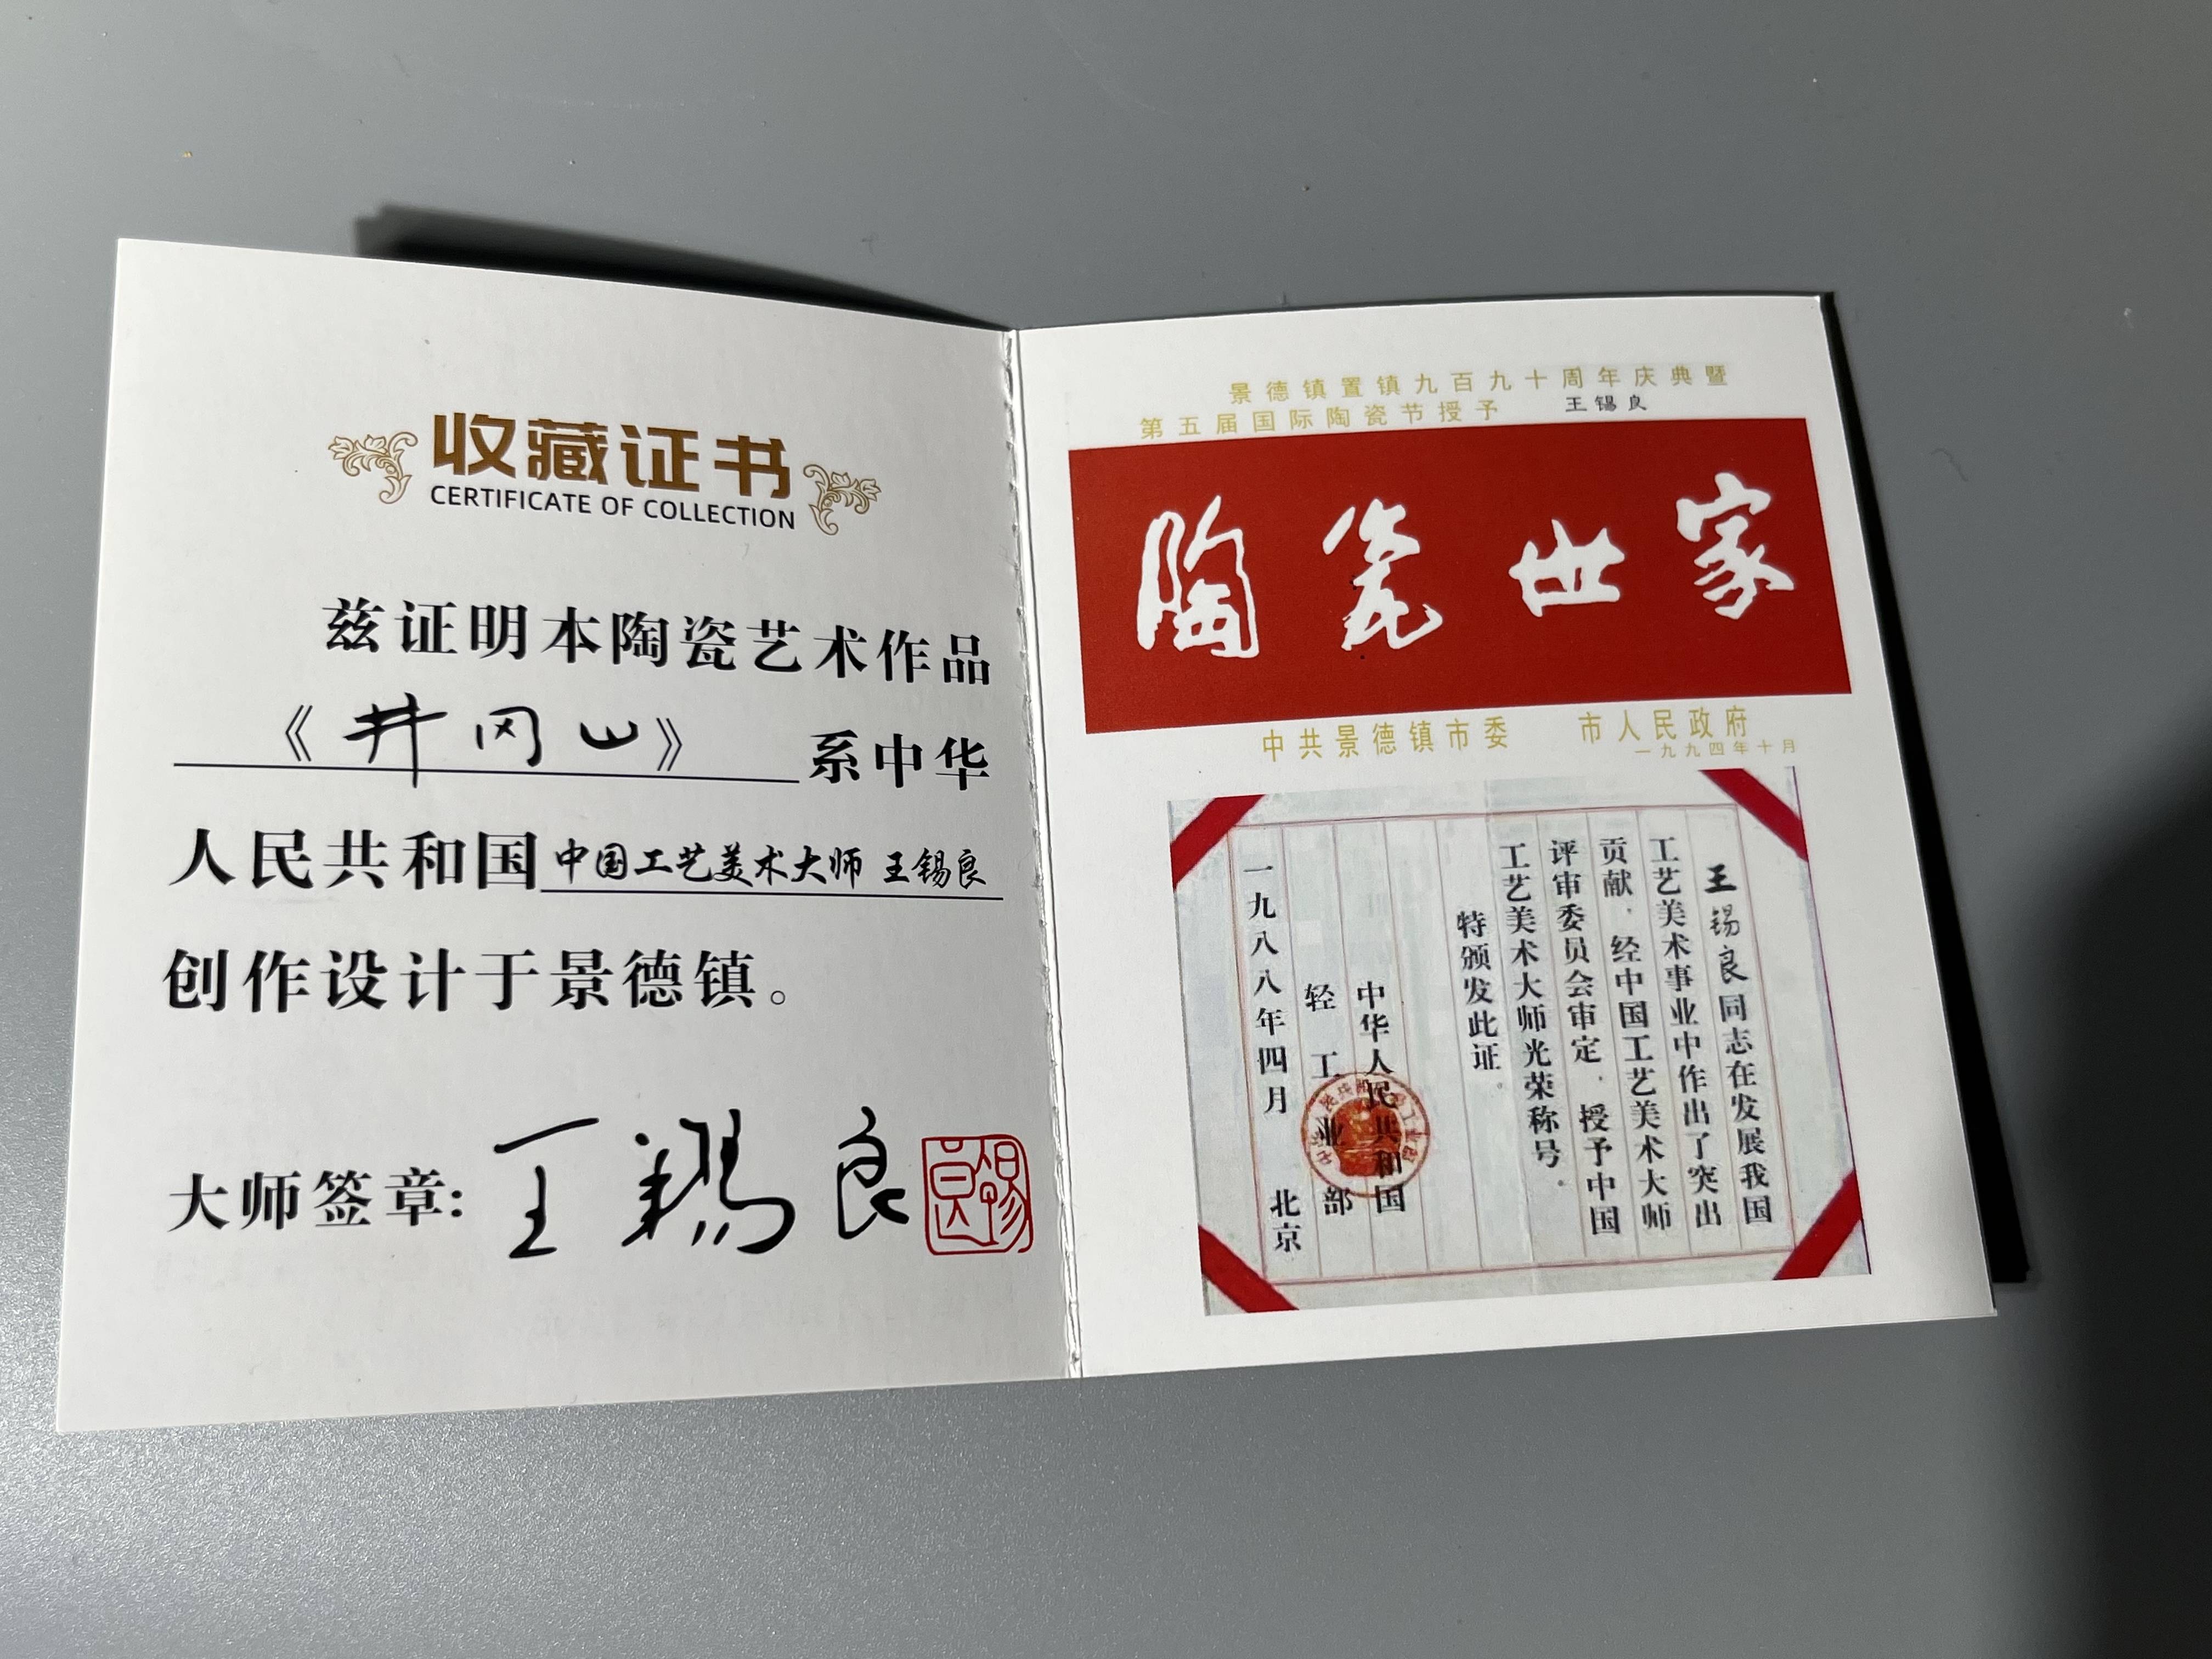 收藏证书
CERTIFICATE OF COLLECTION
兹证明本陶瓷艺术作品
《井冈山》系中华
人民共和国中国工艺美术大师 王锡良
创作设计于景德镇。
大师签章:王锡良
锡良
景德镇置镇九百九十周年庆典暨
第五届国际陶瓷节授予 王锡良
陶瓷世家
中共景德镇市委 市人民政府
一九九四年十月
王锡良同志在发展我国
工艺美术事业中作出了突出
贡献，经中国工艺美术大师
评审委员会审定，授予中国
工艺美术大师光荣称号。
特颁发此证。
中华人民共和国
轻工业部
一九八八年四月 北京